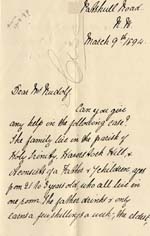 Road
N.W.
March 9th 1894.
Dear Mr Rudolf
Can you give
any help in the following case?
The family live in the parish of
Holy Trinity, Haverstock Hill, &
consists of a Father & 7 children ages
from 21 to 3 years old, who all live in
one room. The father drinks & only
earns a few shillings a week, the eldest